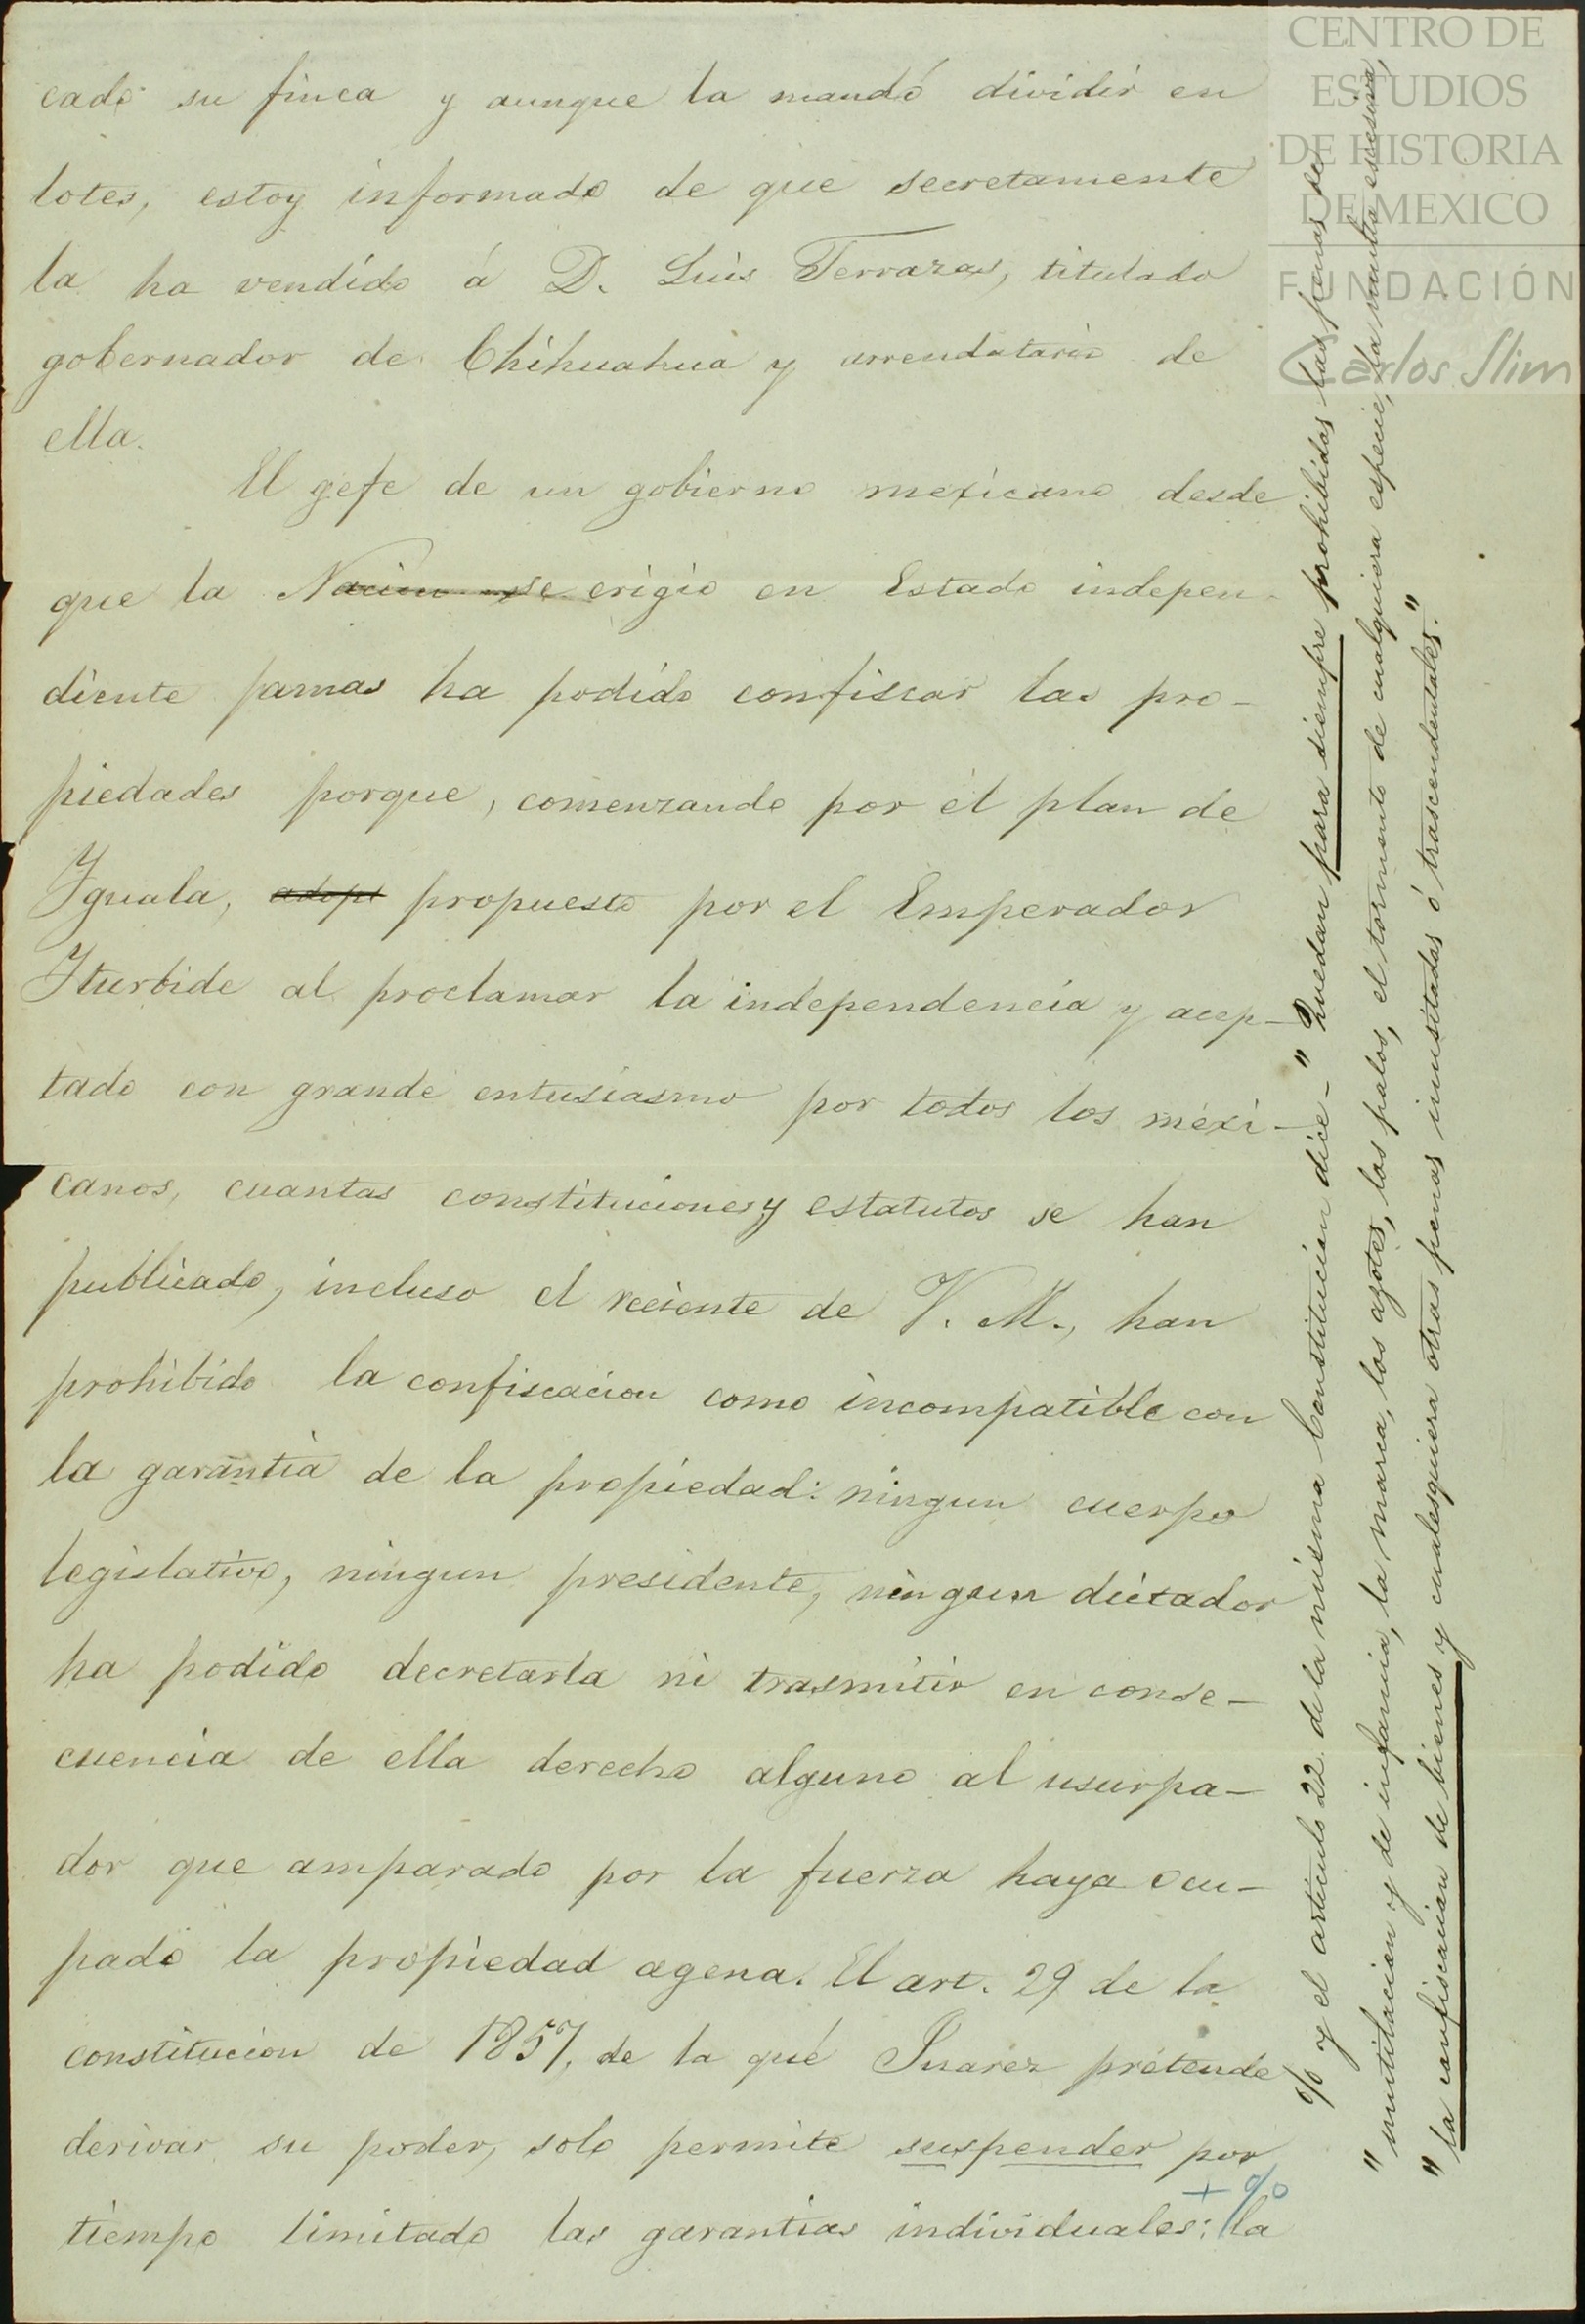 cado su finca y aunque la mandó dividir en
lotes, estoy informado de que secretamente
la ha vendido á D. Luis Terrazas, titulado
gobernador de Chihuahua y arrendatario de
ella.
El gefe de un gobierno mexicano desde
que la Nacion se erigio en Estado indepen-
diente jamas ha podido confiscar las pro-
piedades porque, comenzando por el plan de
Iguala, adopt propuesto por el Emperador
Iturbide al proclamar la independencia y acep-
tado con grande entusiasmo por todos los mexi-
canos, cuantas constituciones y estatutos se han
publicado, incluso el reciente de V. M., han
prohibido la confiscacion como incompatible con
la garantia de la propiedad: ningun cuerpo
legislativo, ningun presidente, ningun dictador
ha podido decretarla ni trasmitir en conse-
cuencia de ella derecho alguno al usurpa-
dor que amparado por la fuerza haya ocu-
pado la propiedad agena. El art. 29 de la
constitucion de 1857, de la que Juarez pretende
derivar su poder, solo permite suspender por
tiempo limitado las garantias individuales: la
+ %
% y el articulo 22 de la misma Constitucion dice - " Quedan para siempre prohibidas las penas de
" mutilacion y de infamia, la marca, los azotes, los palos, el tormento de cualquiera especie, la multa escesiva,
" la confiscacion de bienes y cualesquiera otras penas inusitadas ó trascendentales."
CENTRO DE
ESTUDIOS
DE HISTORIA
DE MEXICO
FUNDACIÓN
Carlos Slim